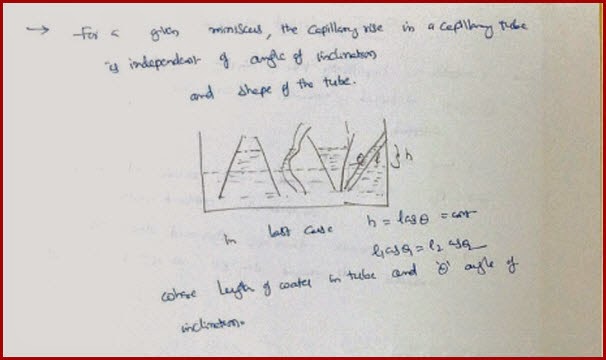 → For a given miniscus, the capillary rise in a capillary tube
is independent of angle of inclination
and shape of the tube.
θ
h
In last case h = l cos θ = const
l₁ cos θ₁ = l₂ cos θ₂
where length of water in tube and 'θ' angle of
inclination.